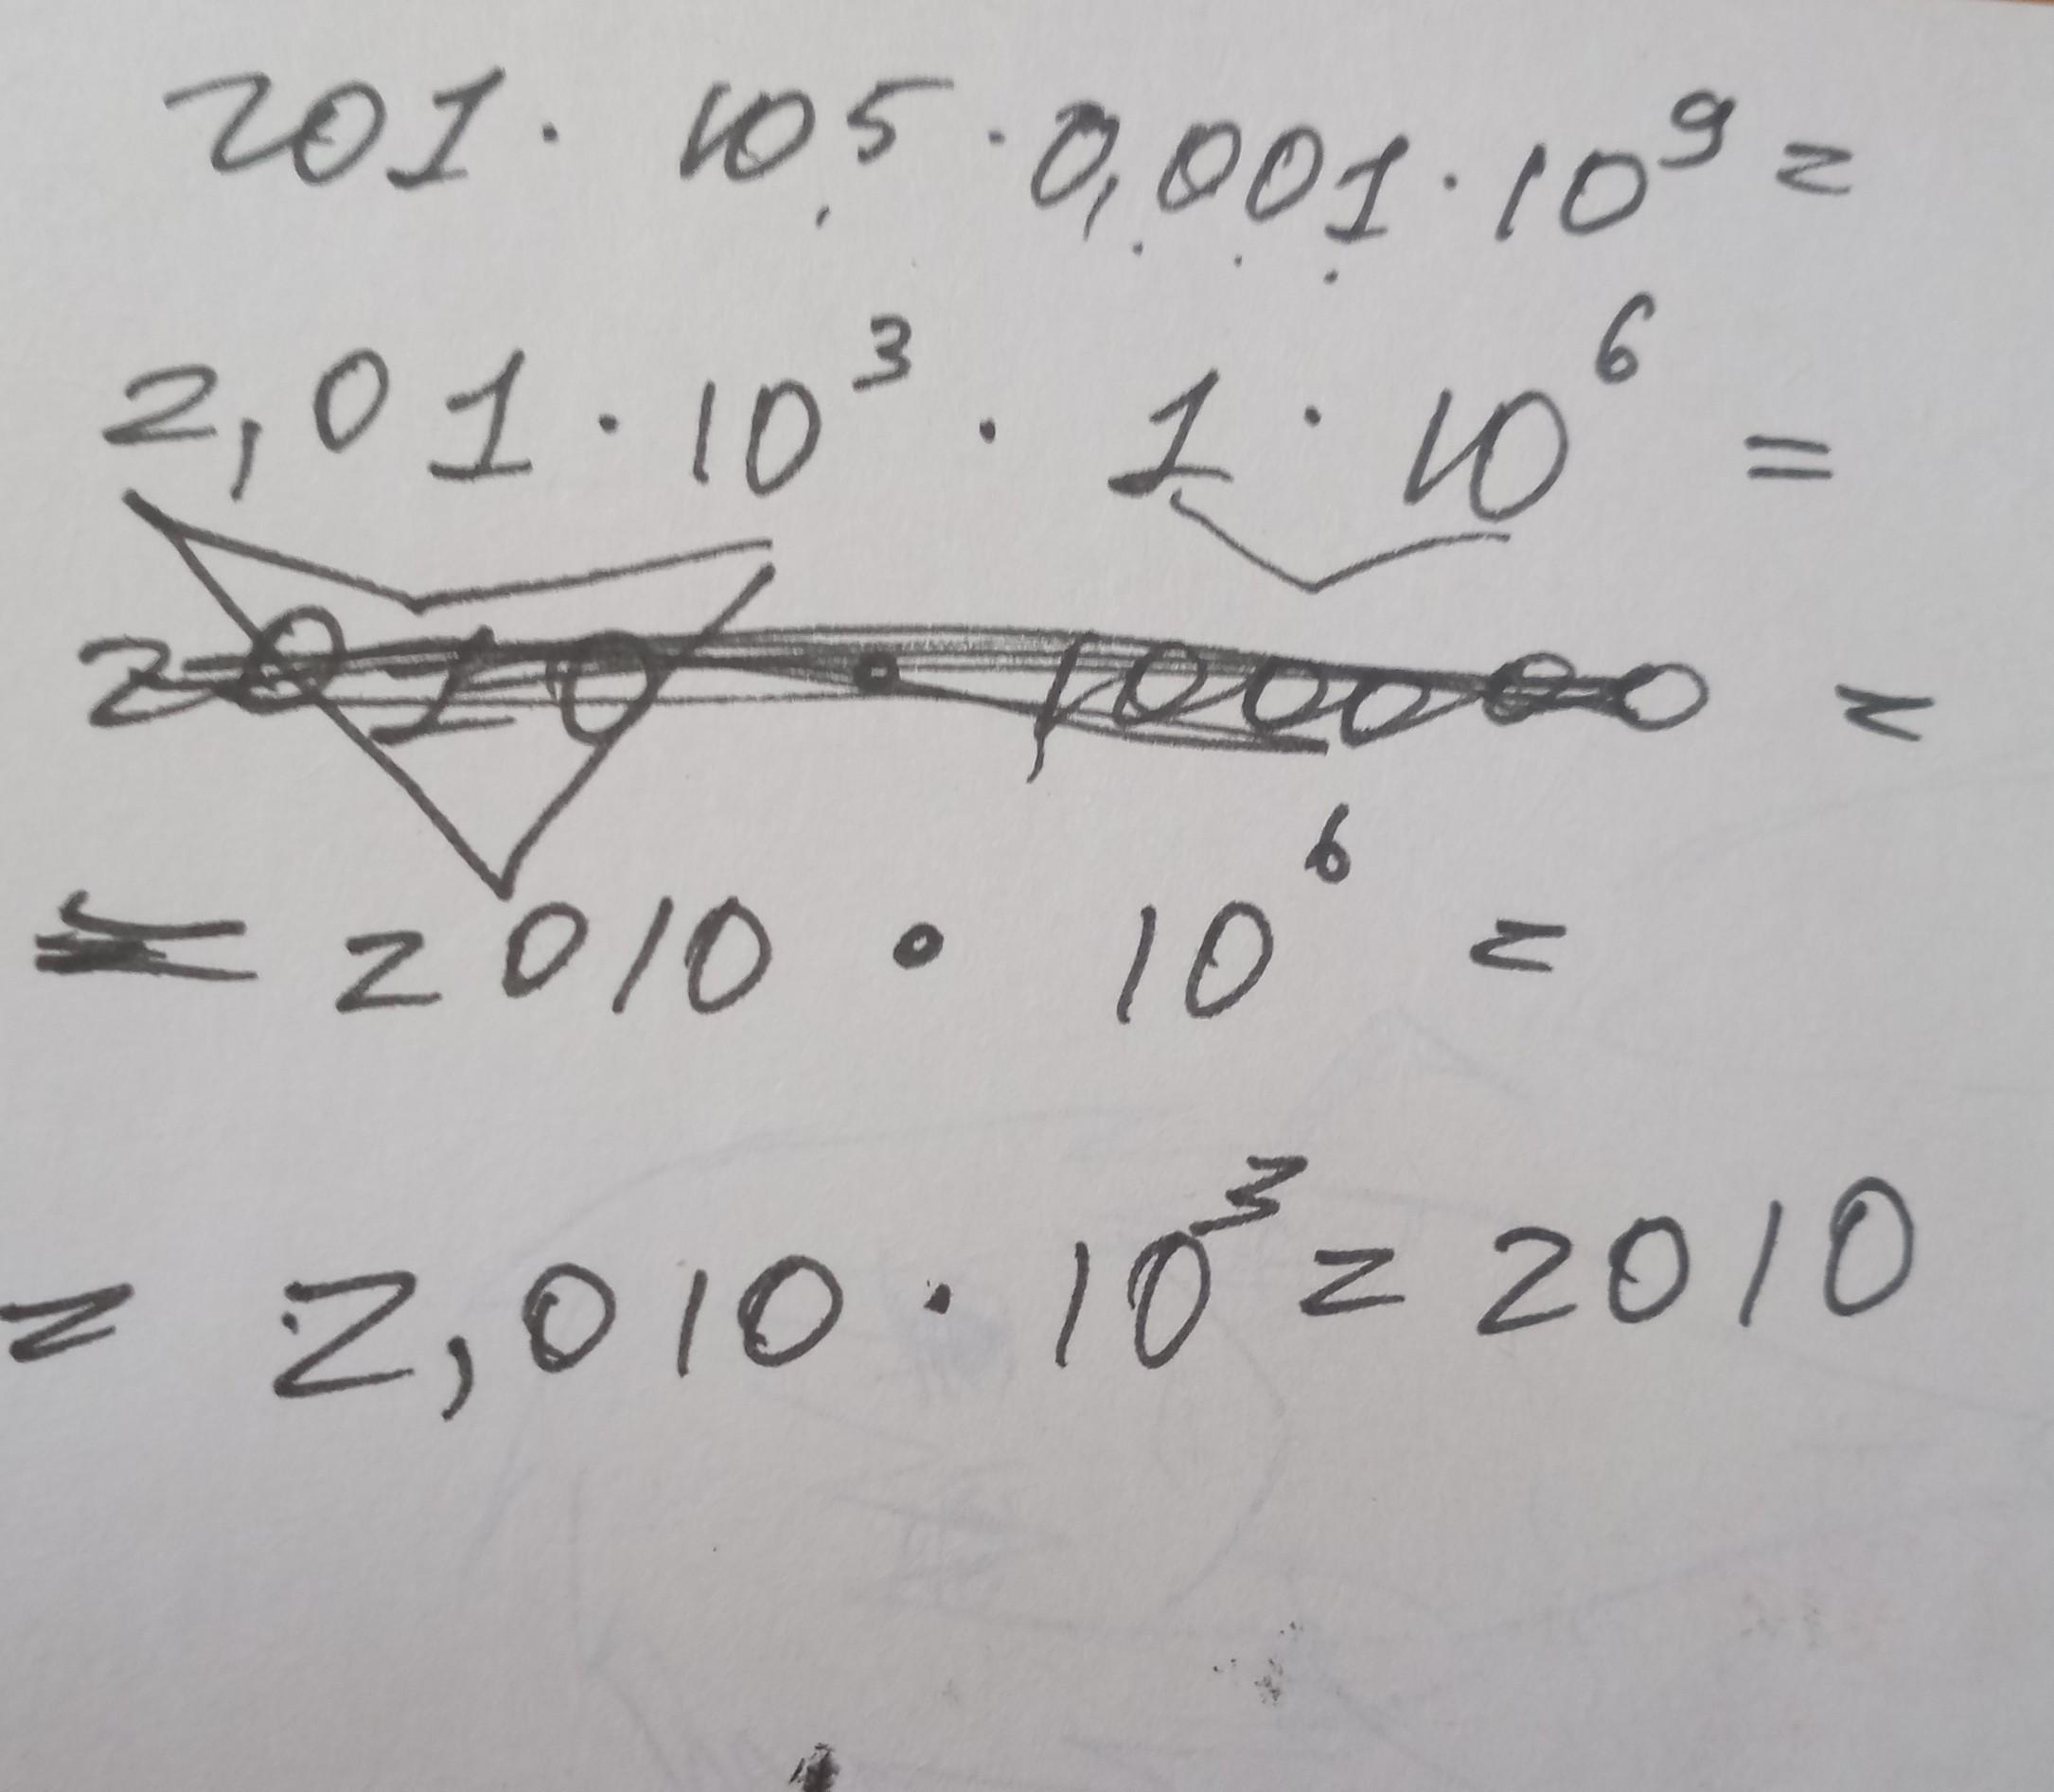 201 · 10 5 · 0,001 · 10⁹ =
2,01 · 10³ · 1 · 10⁶ =
2010 · 100000 =
= 2010 · 10⁶ =
= 2,010 · 10³ = 2010